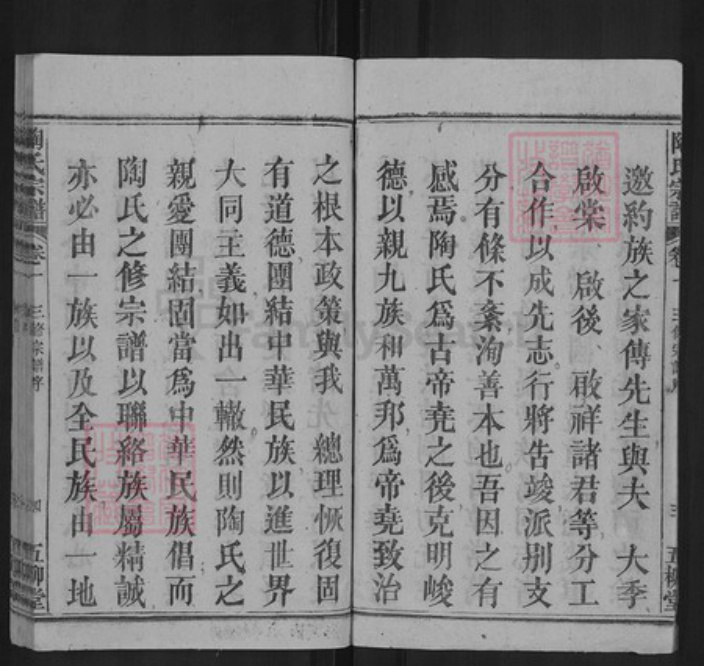 邀約族之家傳先生與夫　大季
啟棠　啟後　啟祥諸君等分工
合作以成先志行將告竣派別支
分有條不紊洵善本也吾因之有
感焉陶氏為古帝堯之後克明峻
德以親九族和萬邦為帝堯致治
之根本政策與我　總理恢復固
有道德團結中華民族以進世界
大同主義如出一轍然則陶氏之
親愛團結固當為中華民族倡而
陶氏之修宗譜以聯絡族屬精誠
亦必由一族以及全民族由一地
陶氏宗譜　卷一　三修宗譜序　五柳堂